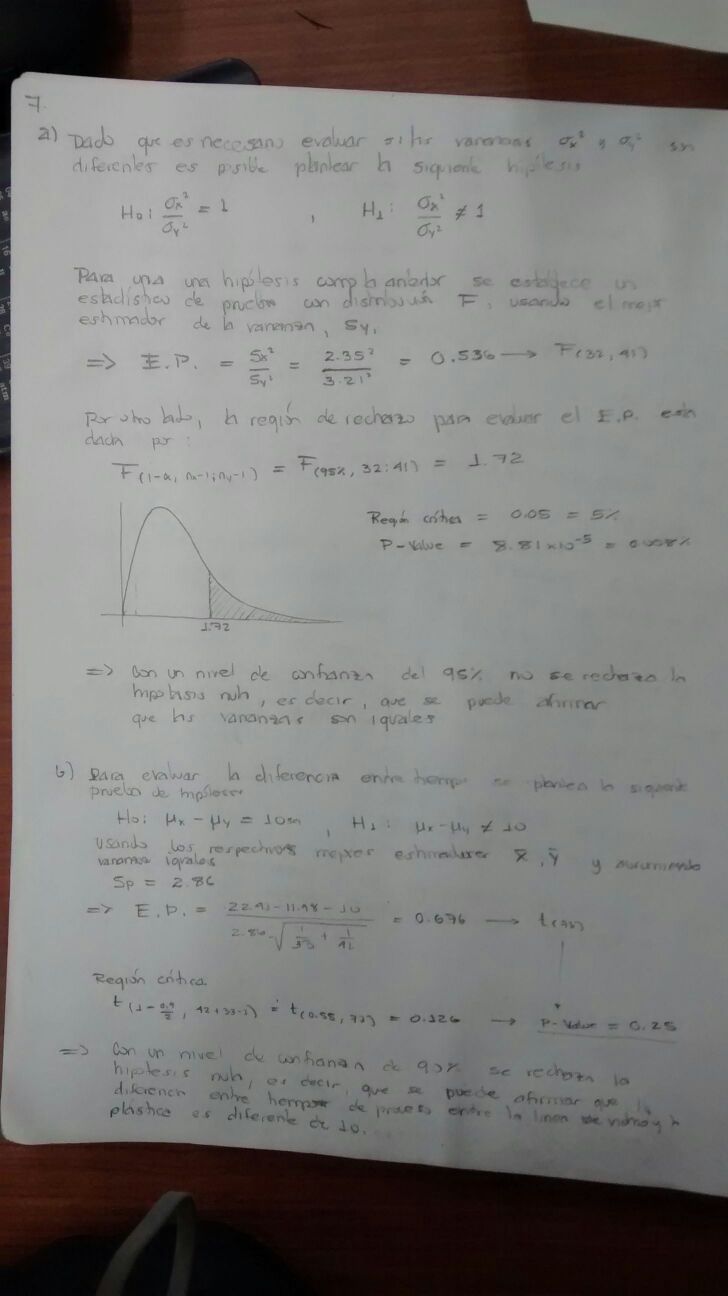 7.
a) Dado que es necesario evaluar si las varianzas σx² y σy² son
diferentes es posible plantear la siguiente hipótesis
H₀: σx²/σy² = 1 , H₁: σx²/σy² ≠ 1
Para una una hipótesis como la anterior se establece un
estadístico de prueba con distribución F, usando el mejor
estimador de la varianza, Sy,
=> E.P. = Sx²/Sy² = 2.35²/3.21² = 0.536 → F(32, 41)
Por otro lado, la región de rechazo para evaluar el E.P. está
dada por:
F(1-α, nx-1; ny-1) = F(95%, 32; 41) = 1.72
Región crítica = 0.05 = 5%
P-Value = 8.81x10⁻⁵ = 0.008%
1.72
=> Con un nivel de confianza del 95% no se rechaza la
hipótesis nula, es decir, que se puede afirmar
que las varianzas son iguales
b) Para evaluar la diferencia entre tiempo se plantea la siguiente
prueba de hipótesis
H₀: μx - μy = 10 , H₁: μx - μy ≠ 10
Usando los respectivos mejores estimadores x̄, ȳ y asumiendo
varianza iguales
Sp = 2.86
=> E.P. = = 0.676 → t(73)
Región crítica
t(1 - 0.9/2, 42+33-2) = t(0.55, 73) = 0.126 → P-Value = 0.25
=> Con un nivel de confianza de 90% se rechaza la
hipótesis nula, es decir, que se puede afirmar que la
diferencia entre tiempos de proceso entre la linea de vidrio y la
plástico es diferente de 10.